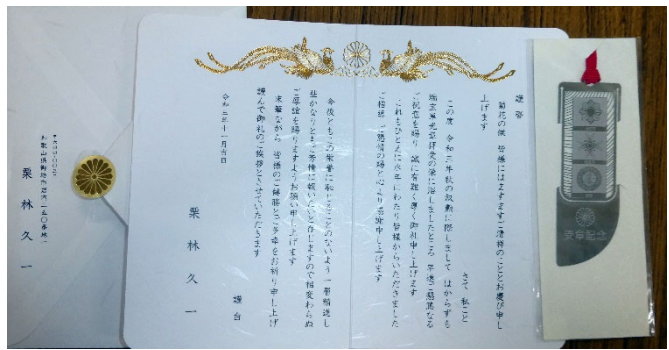 謹啓
菊花の候 皆様にはますますご清祥のこととお慶び申し
上げます
さて、私こと
この度 令和三年秋の叙勲に際しまして はからずも
瑞宝単光章拝受の栄に浴しましたところ 早速ご懇篤なる
ご祝意を賜り 誠に有難く厚く御礼申し上げます
これもひとえに永年にわたり皆様からいただきました
ご指導 ご懇情の賜と心より感謝申し上げます
今後ともこの栄誉に恥じることのないよう一層精進し
些かなりともご芳情に報いたいと存じますので相変わらぬ
ご厚誼を賜りますようお願い申し上げます
末筆ながら 皆様のご健勝とご多幸をお祈り申し上げ
謹んで御礼のご挨拶とさせていただきます
謹白
令和三年十一月吉日
栗林久一
栗林久一
受章記念